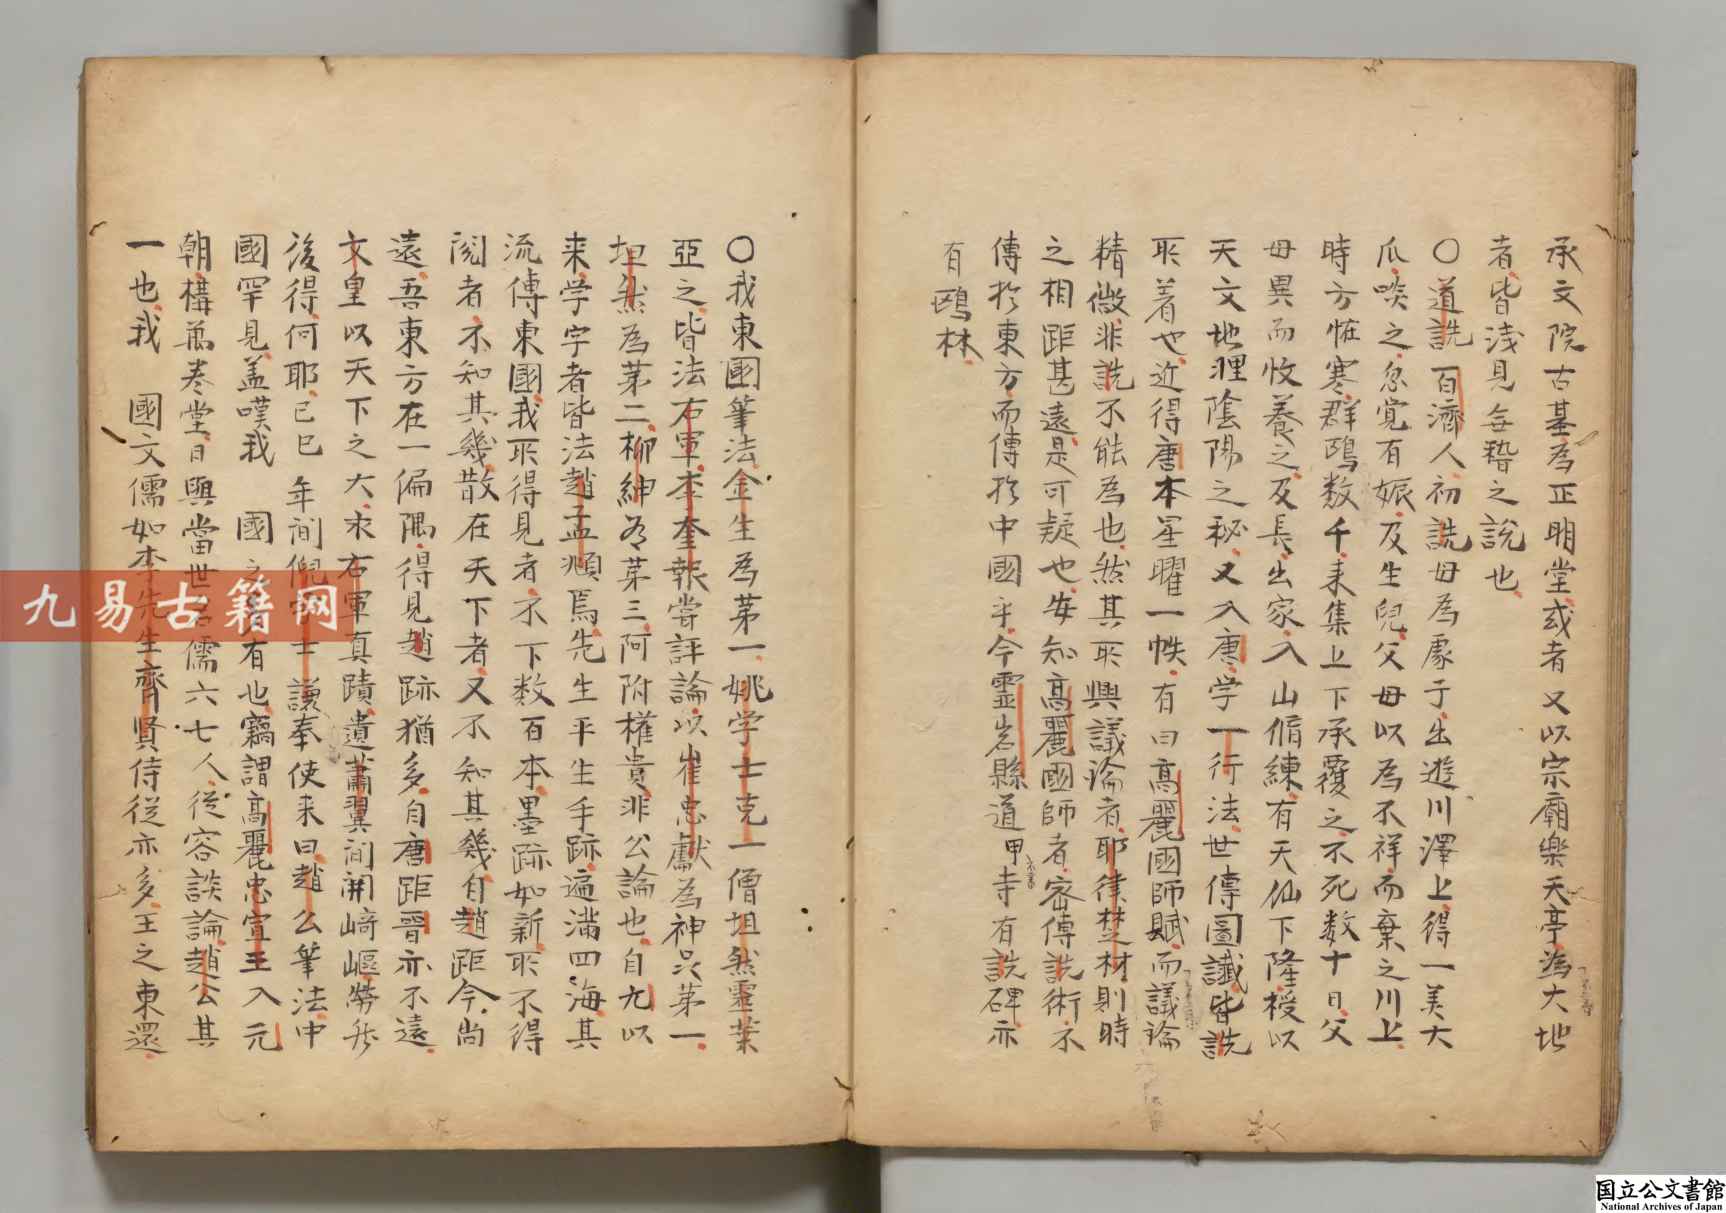 承文院古基為正明堂或者又以宗廟樂天亭為大地
者皆浅見無稽之說也
〇道詵百濟人初詵母為處子出遊川澤上得一美大
瓜啖之忽覚有娠及生兒父母以為不祥而棄之川上
時方恠寒群鴎数千来集上下承覆之不死数十日父
母異而收養之及長出家入山脩練有天仙下降授以
天文地理陰陽之秘又入唐学一行法世傳圖讖皆詵
所著也近得唐本星曜一帙有曰高麗國師賦而議論
精微非詵不能為也然其所與議論者耶律楚材則時
之相距甚遠是可疑也安知高麗國師者密傳詵術不
傳於東方而傳於中國乎今霊岩縣道甲寺有詵碑亦
有鴎林
〇我東國筆法金生為第一姚学士克一僧坦然靈業
亞之皆法右軍李奎報嘗評論以崔忠獻為神品第一
坦然為第二柳紳為第三阿附權貴非公論也自九以
来学字者皆法趙孟頫焉先生平生手跡遍滿四海其
流傳東國我所得見者不下数百本墨跡如新所不得
閲者不知其幾散在天下者又不知其幾自趙距今尚
遠吾東方在一偏隅得見趙跡猶多自唐距晋亦不遠
文皇以天下之大求右軍真蹟遣蕭翼間關崎嶇勞
後得何耶己巳年間倪士謙奉使来曰趙公筆法中
國罕見盖嘆我國之有也竊謂高麗忠宣王入元
朝構萬卷堂日與當世名儒六七人従容談論趙公其
一也我國文儒如李先生齊賢侍従亦多王之東還
九易古籍网
国立公文書館
National Archives of Japan